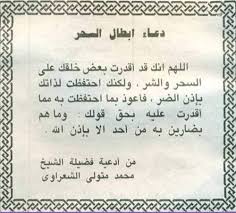 دعاء ابطال السحر
اللهم انك قد اقدرت بعض خلقك على
السحر والشر ، ولكنك احتفظت لذاتك
بإذن الضر ، فأعوذ بما احتفظت به مما
اقدرت عليه بحق قولك : وما هم
بضارين به من أحد الا بإذن الله .
من أدعية فضيلة الشيخ
محمد متولى الشعراوى